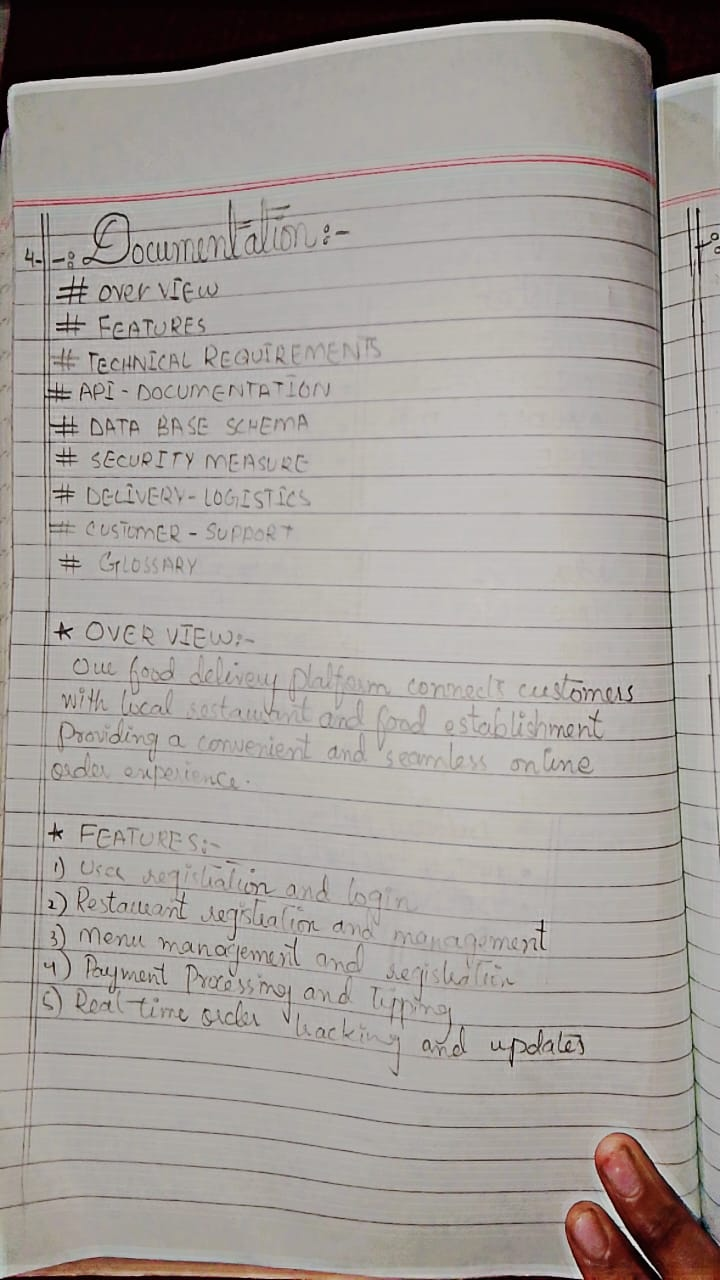 4- -: Documentation:-
# over VIEW
# FEATURES
# TECHNICAL REQUIREMENTS
# API - DOCUMENTATION
# DATA BASE SCHEMA
# SECURITY MEASURE
# DELIVERY - LOGISTICS
# CUSTOMER - SUPPORT
# GLOSSARY
* OVER VIEW:-
Our food delivery platform connects customers
with local restaurant and food establishment
Providing a convenient and seamless online
order experience.
* FEATURES:-
1) User registration and login
2) Restaurant registration and management
3) Menu management and registration
4) Payment Processing and Tipping
5) Real time order tracking and updates